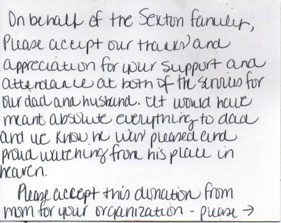 On behalf of the Sexton family,
Please accept our thanks and
appreciation for your support and
attendance at both of the services for
our dad and husband. It would have
meant absolute everything to dad
and we know he was pleased and
proud watching from his place in
heaven.
Please accept this donation from
mom for your organization - please →